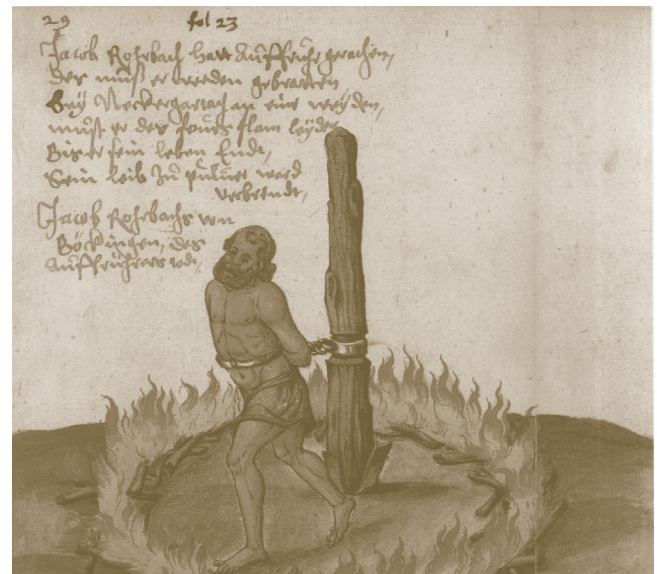 29 fol 23
Jacob Rohrbach hatt Auffruhr gerathen,
des must er werden gebratten
Bey Neckergartach an eine weyden,
must er des feurs flam leyden
Bis er sein leben Endt,
Sein leib zu pulver ward
verbrendt,
Jacob Rohrbachs von
Böckingen, des
Auffrührers todt,